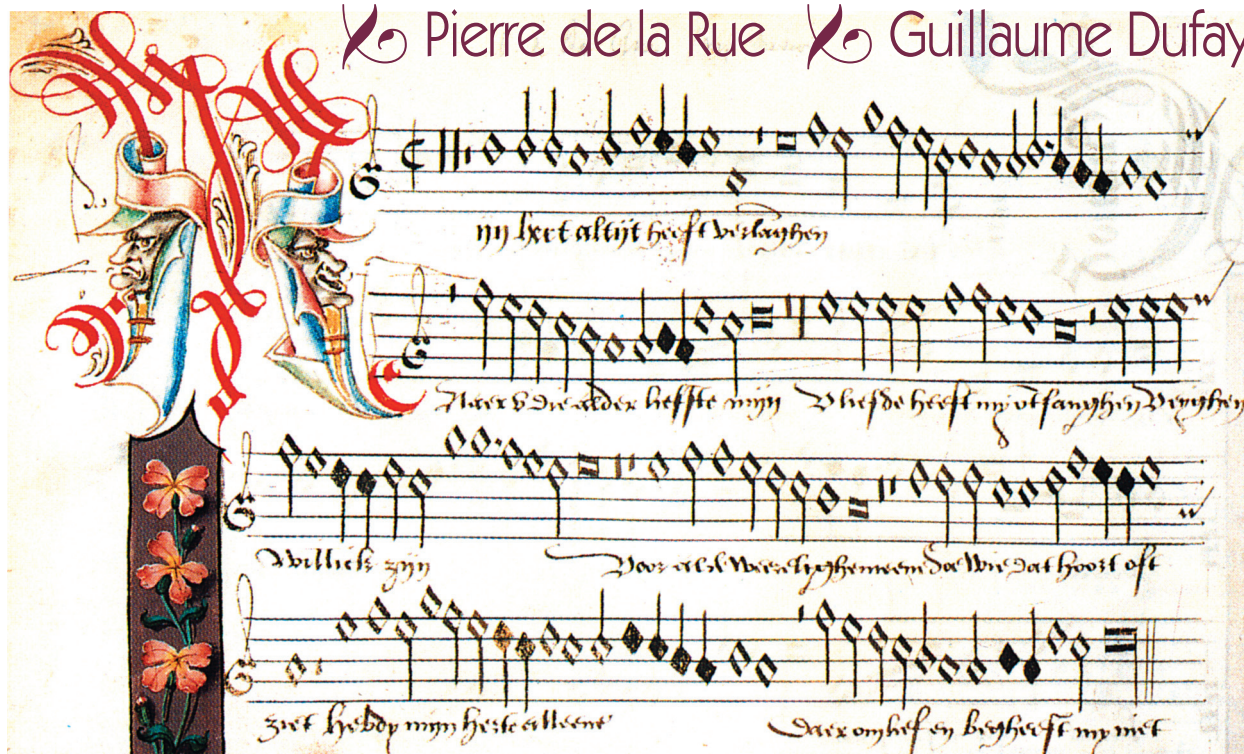 Pierre de la Rue Guillaume Dufay
Mijn hert altijt heeft verlanghen
Naer v die alder liefste mijn V liefde heeft mij ōtfanghen V eyghen
willick zijn Voor al de weerelt ghemeene wie dat hoort oft
ziet hebdy mijn herte alleene Daer om lief en begheeft mij niet